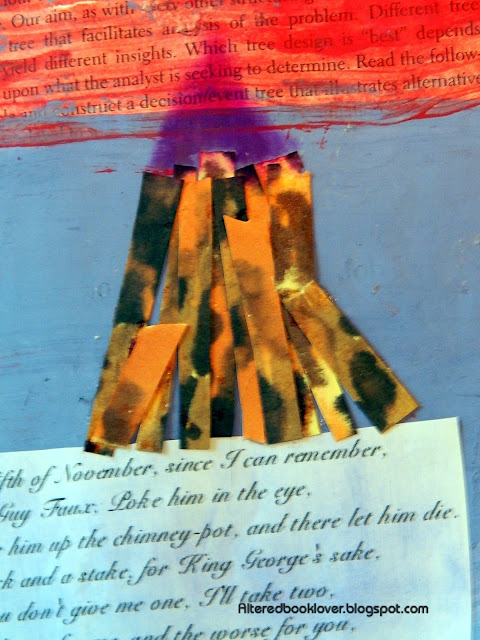 Our aim, as with very other struct
tree that facilitates analysis of the problem. Different tree
yield different insights. Which tree design is "best" depends
upon what the analyst is seeking to determine. Read the follow-
and construct a decision/event tree that illustrates alternative
fifth of November, since I can remember,
Guy Faux, Poke him in the eye,
him up the chimney-pot, and there let him die.
and a stake, for King George's sake.
don't give me one, I'll take two,
and the worse for you,
Alteredbooklover.blogspot.com